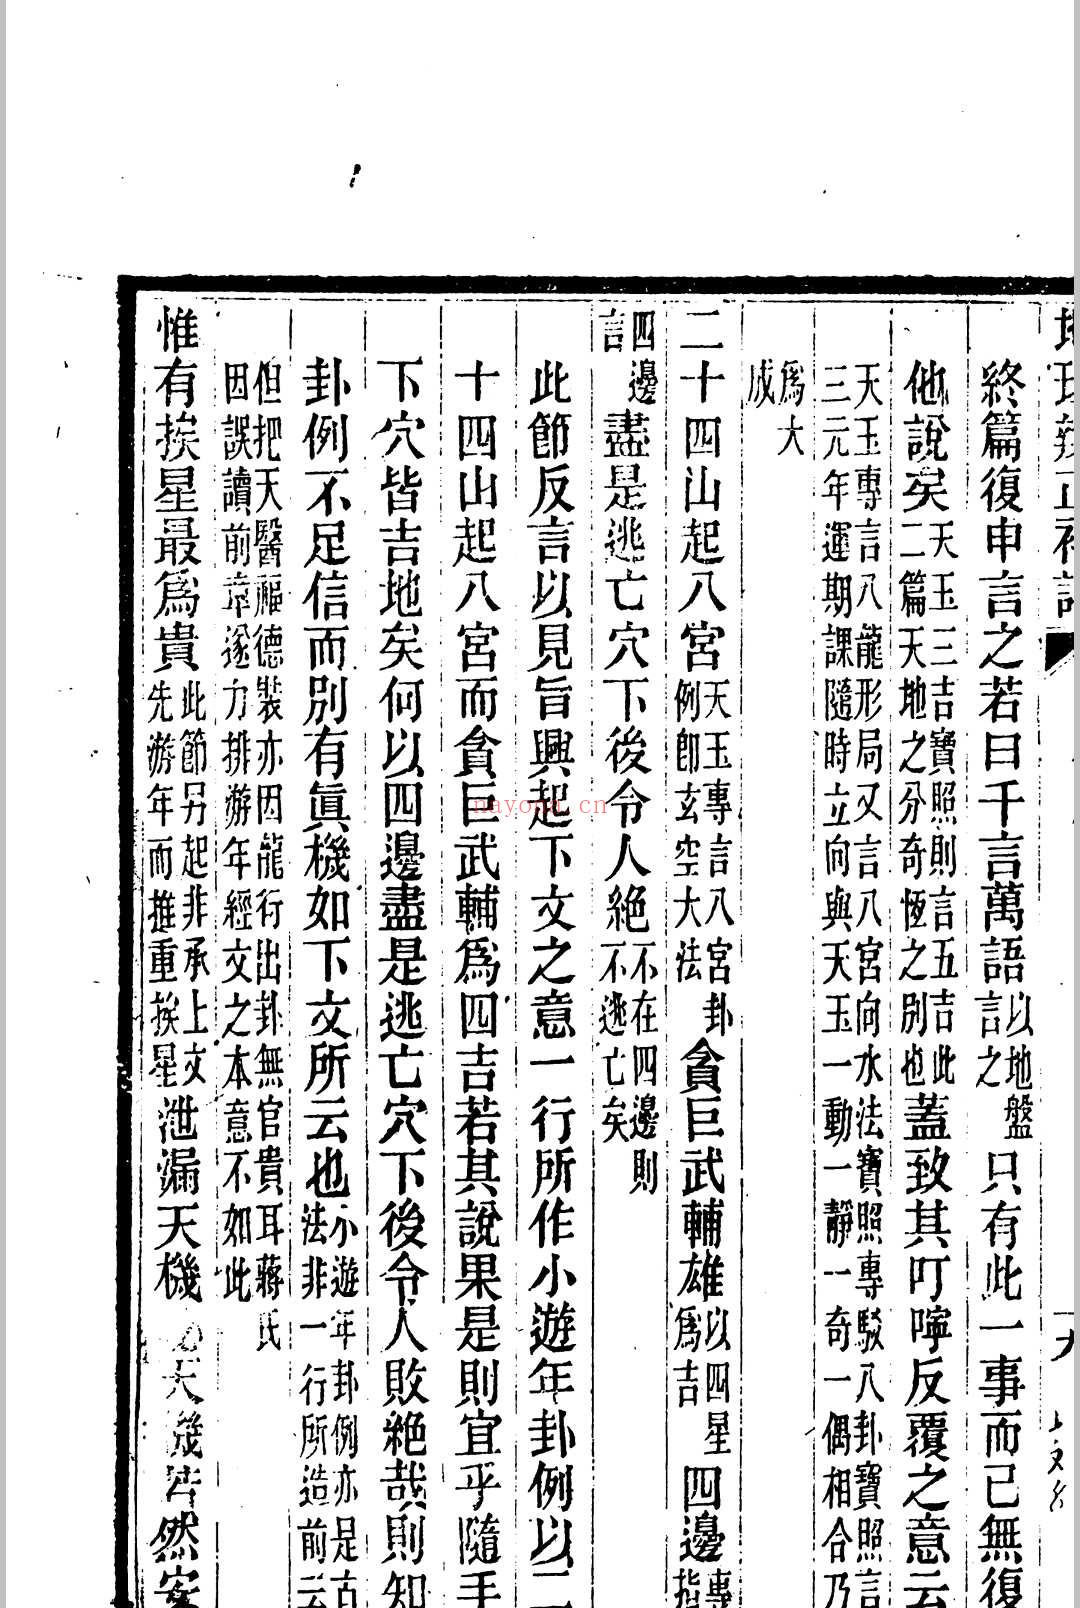 地理辨正補
終篇復申言之若曰千言萬語以地盤言之只有此一事而已無復
他說矣天玉三吉寶照則言五吉此二篇天地之分奇恆之別也蓋致其叮嚀反覆之意云
天玉專言八龍形局又言八宮向水法寶照專駁八卦寶照言
三元年運期課隨時立向與天玉一動一靜一奇一偶相合乃
為大
成
二十四山起八宮天玉專言八宮卦例卽玄空大法貪巨武輔雄以四星為吉四邊專指
四邊言盡是逃亡穴下後令人絶不在四邊則不逃亡矣
此節反言以見旨興起下文之意一行所作小遊年卦例以二
十四山起八宮而貪巨武輔為四吉若其說果是則宜乎隨手
下穴皆吉地矣何以四邊盡是逃亡穴下後令人敗絶哉則知
卦例不足信而別有眞機如下文所云也小遊年卦例亦是古法非一行所造前云
但把天醫福德裝亦因龍行出卦無官貴耳蔣氏
因誤讀前章遂力排游年經文之本意不如此
惟有挨星最為貴此節另起非承上文先游年而推重挨星泄漏天機天機皆然安